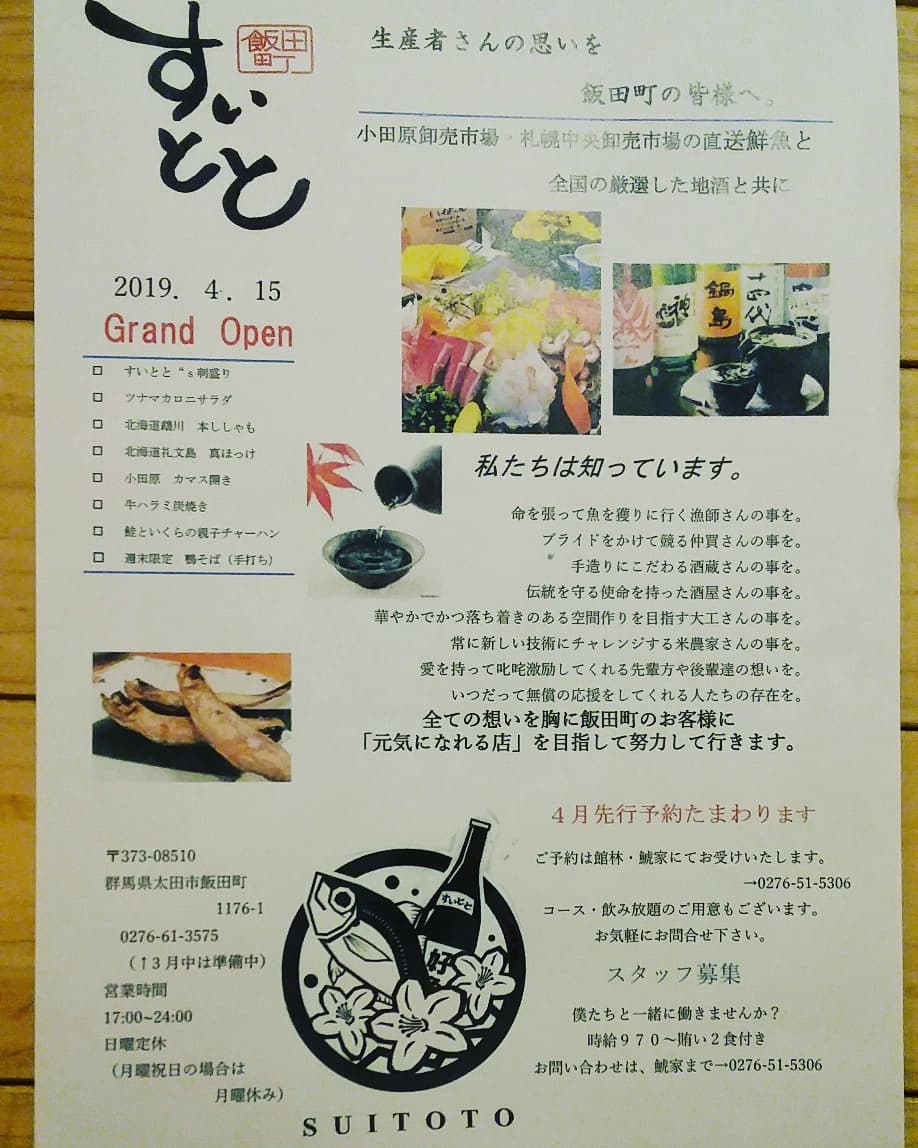 すいとと
飯田町
生産者さんの思いを
飯田町の皆様へ。
小田原卸売市場・札幌中央卸売市場の直送鮮魚と
全国の厳選した地酒と共に
2019. 4. 15
Grand Open
□ すいとと“s刺盛り
□ ツナマカロニサラダ
□ 北海道鵡川 本ししゃも
□ 北海道礼文島 真ほっけ
□ 小田原 カマス開き
□ 牛ハラミ炭焼き
□ 鮭といくらの親子チャーハン
□ 週末限定 鴨そば（手打ち）
鍋島
十四代
私たちは知っています。
命を張って魚を獲りに行く漁師さんの事を。
プライドをかけて競る仲買さんの事を。
手造りにこだわる酒蔵さんの事を。
伝統を守る使命を持った酒屋さんの事を。
華やかでかつ落ち着きのある空間作りを目指す大工さんの事を。
常に新しい技術にチャレンジする米農家さんの事を。
愛を持って叱咤激励してくれる先輩方や後輩達の想いを。
いつだって無償の応援をしてくれる人たちの存在を。
全ての想いを胸に飯田町のお客様に
「元気になれる店」を目指して努力して行きます。
〒373-08510
群馬県太田市飯田町
1176-1
0276-61-3575
（↑３月中は準備中）
営業時間
17:00~24:00
日曜定休
（月曜祝日の場合は
月曜休み）
すいとと
好
SUITOTO
４月先行予約たまわります
ご予約は館林・鯱家にてお受けいたします。
→0276-51-5306
コース・飲み放題のご用意もございます。
お気軽にお問合せ下さい。
スタッフ募集
僕たちと一緒に働きませんか？
時給９７０～賄い２食付き
お問い合わせは、鯱家まで→0276-51-5306